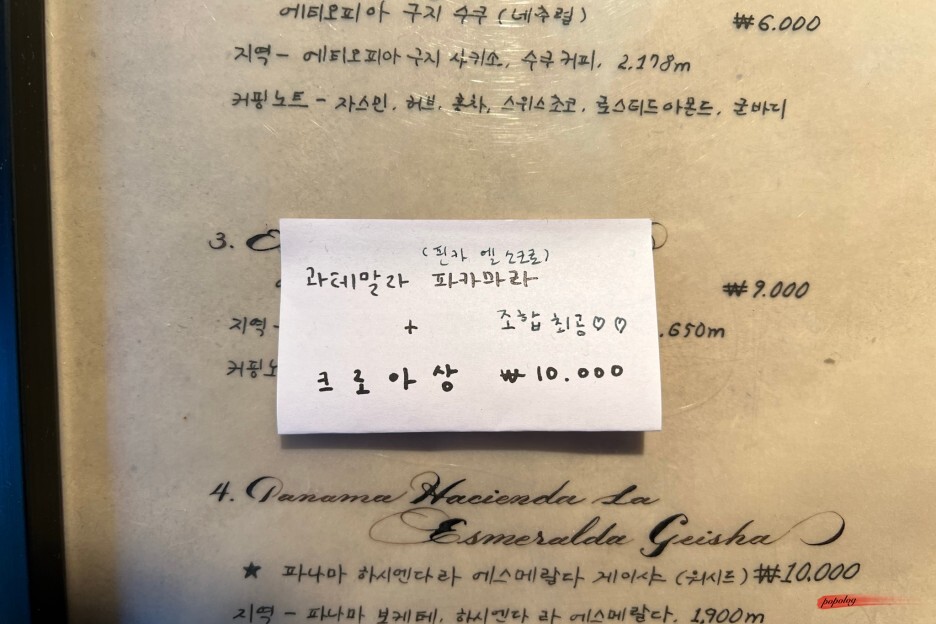 에티오피아 구지 수쿠 (네추럴) ₩6.000
지역 - 에티오피아 구지 사키소, 수쿠 커피, 2,178m
커핑노트 - 자스민, 허브, 홍차, 스위스초코, 로스티드아몬드, 굳바디
3. E
₩9.000
지역 - .650m
커핑노
(핀카 엘 소코로)
과테말라 파카마라
+ 조합 최공♡♡
크로아상 ₩10.000
4. Panama Hacienda La
Esmeralda Geisha
★ 파나마 하시엔다 라 에스메랄다 게이샤 (워시드) ₩10.000
지역 - 파나마 보케테, 하시엔다 라 에스메랄다, 1,900m
popolog